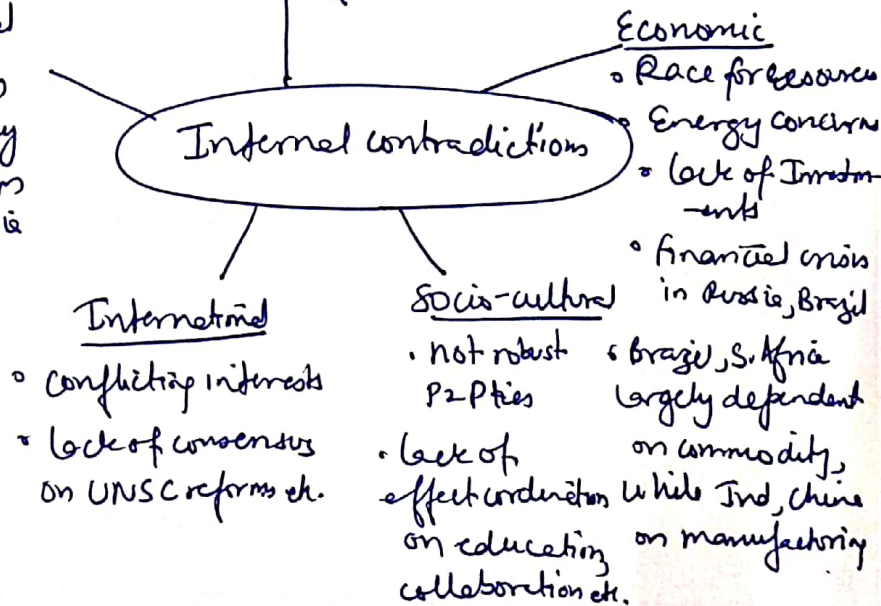 Internal contradictions
Economic
Race for resources
Energy concerns
lack of Investm-
-ents
financial crisis
in Russia, Brazil
Brazil, S. Africa
largely dependent
on commodity,
while Ind, China
on manufacturing
International
conflicting interests
lack of consensus
on UNSC reforms etc.
Socio-cultural
not robust
P2P ties
lack of
effect cordination
on education,
collaboration etc.